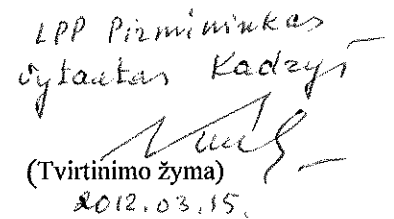 LPP Pirmininkas
Vytautas Kadzys
(Tvirtinimo žyma)
2012.03.15.